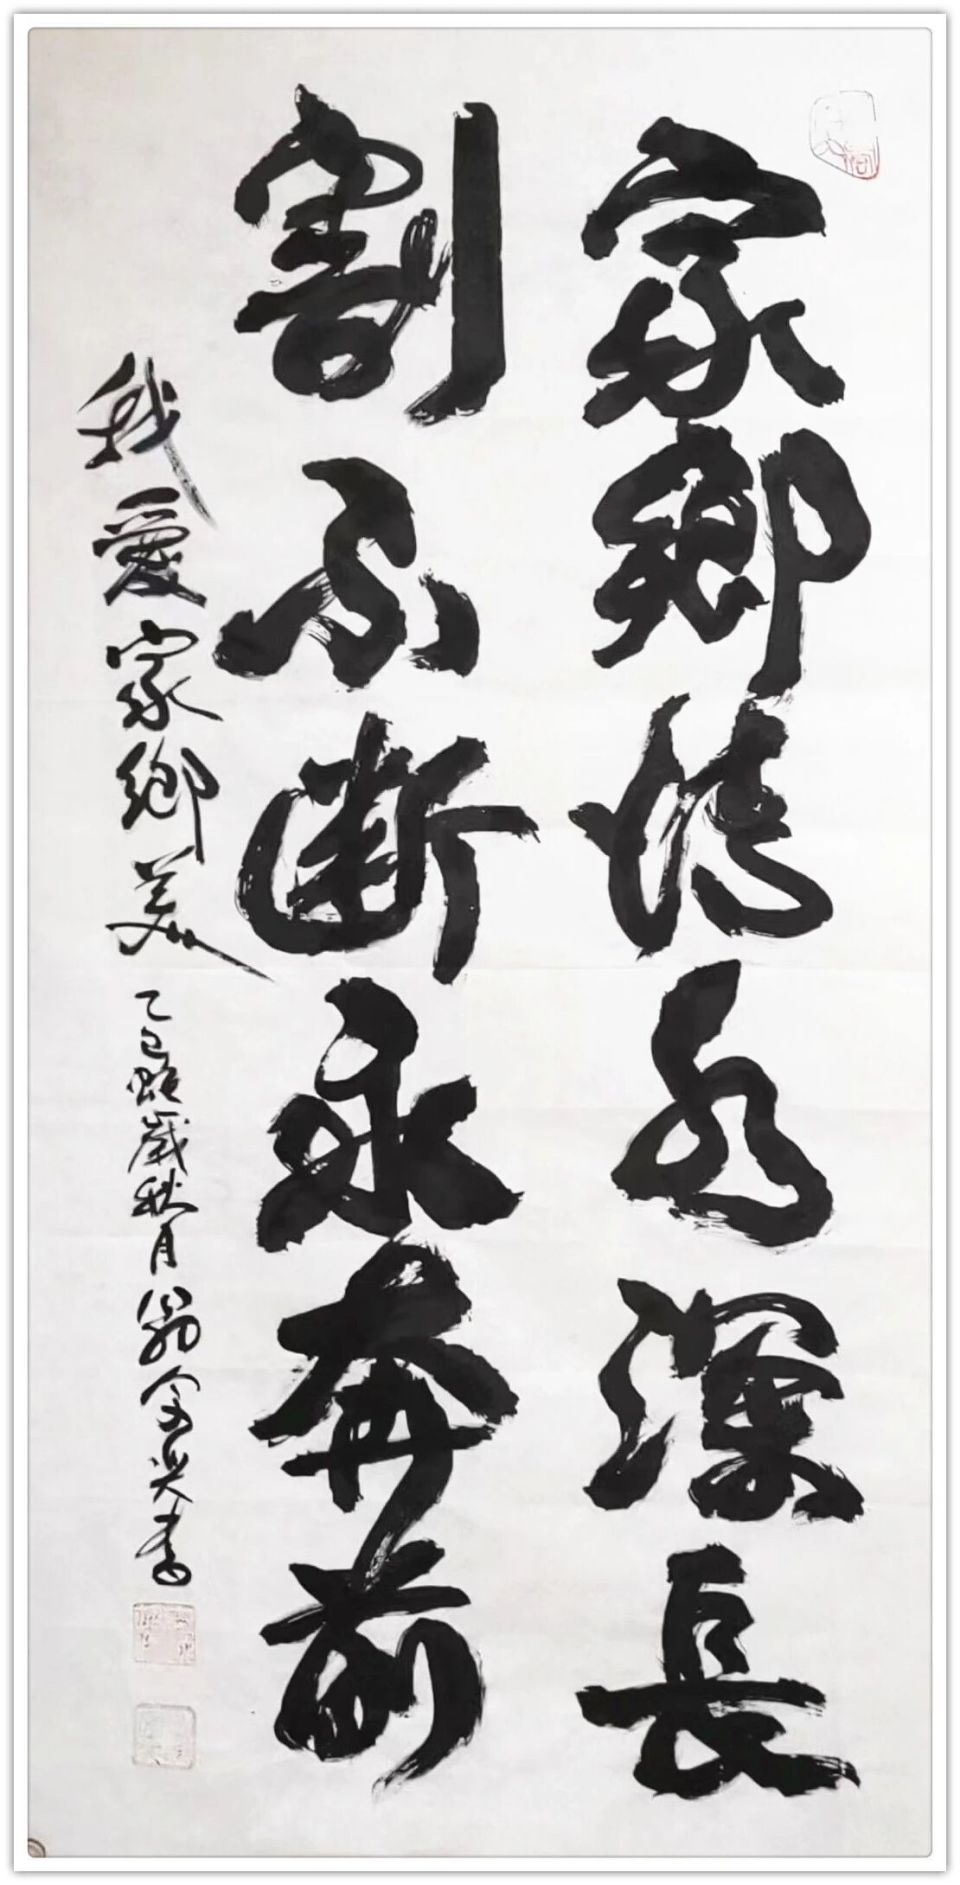 家鄉情水深長
割不断永奔前
我愛家鄉美
乙巳蛇歲秋月翁富興書